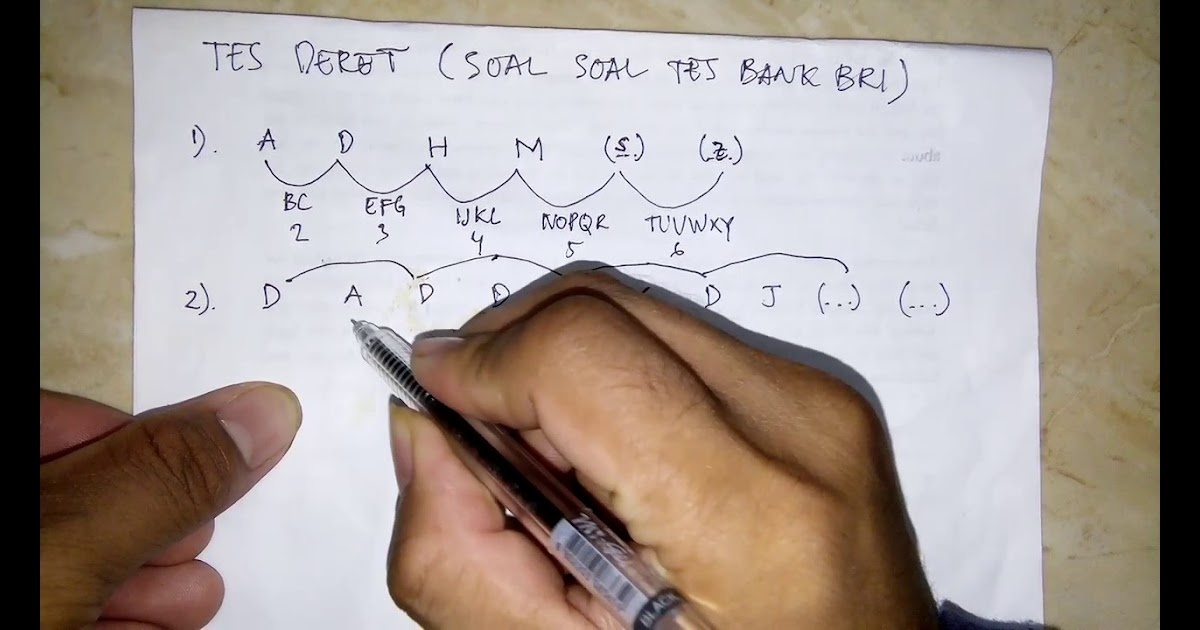 TES DERET (SOAL SOAL TES BANK BRI)
1). A D H M (S.) (Z.)
BC EFG IJKL NOPQR TUVWXY
2 3 4 5 6
2). D A D D D J (...) (...)
BLACK